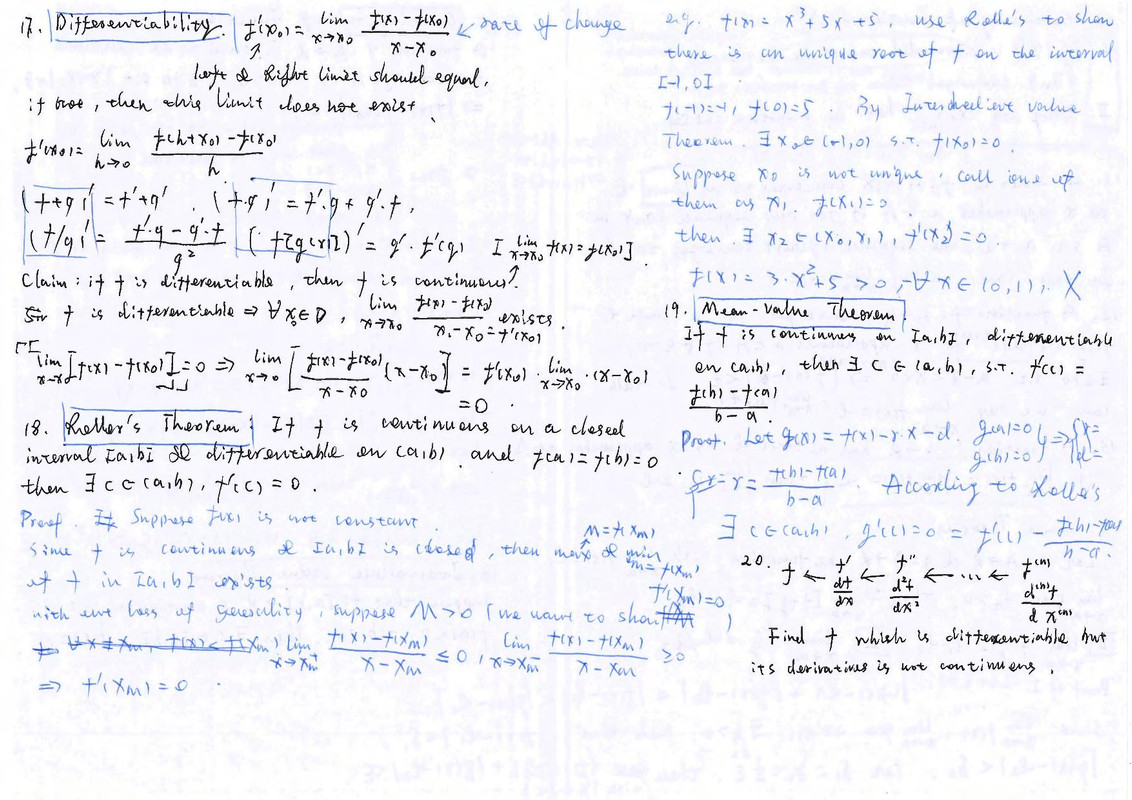 17. Differentiability. f'(x₀) = lim x→x₀ (f(x) - f(x₀))/(x - x₀) ← rate of change
left & Right limit should equal,
if not, then this limit does not exist.
f'(x₀) = lim h→0 (f(h+x₀) - f(x₀))/h
(f+g)' = f'+g' . (f·g)' = f'·g + g'·f,
(f/g)' = (f'·g - g'·f)/g² (f[g(x)])' = g'·f'(g) [lim x→x₀ f(x) = f(x₀)]
Claim: if f is differentiable, then f is continuous.
f is differentiable ⇒ ∀ x₀ ∈ D, lim x→x₀ (f(x) - f(x₀))/(x - x₀) = f'(x₀) exists.
lim x→x₀ [f(x) - f(x₀)] = 0 ⇒ lim x→x₀ [(f(x) - f(x₀))/(x - x₀) (x - x₀)] = f'(x₀) · lim x→x₀ (x - x₀)
= 0 .
18. Roller's Theorem If f is continuous on a closed
interval [a,b] & differentiable on (a,b) and f(a) = f(b) = 0
then ∃ c ∈ (a,b), f'(c) = 0 .
Proof. If Suppose f(x) is not constant.
Since f is continuous & [a,b] is closed, then max & min
M = f(x_M)
m = f(x_m)
of f in [a,b] exists
f'(x_M) = 0
without loss of generality, suppose M > 0 (we want to show )
lim x→x_M (f(x) - f(x_M))/(x - x_M) ≤ 0 , lim x→x_M (f(x) - f(x_M))/(x - x_M) ≥ 0
⇒ f'(x_M) = 0 .
e.g. f(x) = x³ + 5x + 5 , use Rolle's to show
there is an unique root of f on the interval
[-1, 0]
f(-1) = -1, f(0) = 5 . By value
Theorem. ∃ x₀ ∈ (-1, 0) s.t. f(x₀) = 0 .
Suppose x₀ is not unique, call one of
them as x₁ f(x₁) = 0
then ∃ x₂ ∈ (x₀, x₁) f'(x₂) = 0 .
f(x) = 3·x² + 5 > 0, ∀ x ∈ (0, 1), X
19. Mean-value Theorem
If f is continues on [a,b], differentiable
on (a,b), then ∃ c ∈ (a,b), s.t. f'(c) =
(f(b) - f(a))/(b - a) .
Proof. Let g(x) = f(x) - r·x - d. g(a) = 0 g(b) = 0 } ⇒ { r = d =
r = (f(b) - f(a))/(b - a) . According to Rolle's
∃ c ∈ (a,b), g'(c) = 0 = f'(c) - (f(b) - f(a))/(b - a) .
20. f ← f' ← f'' ← ... ← f⁽ⁿ⁾
df/dx d²f/dx² d⁽ⁿ⁾f/d x⁽ⁿ⁾
Find f which is differentiable but
its derivatives is not continuous